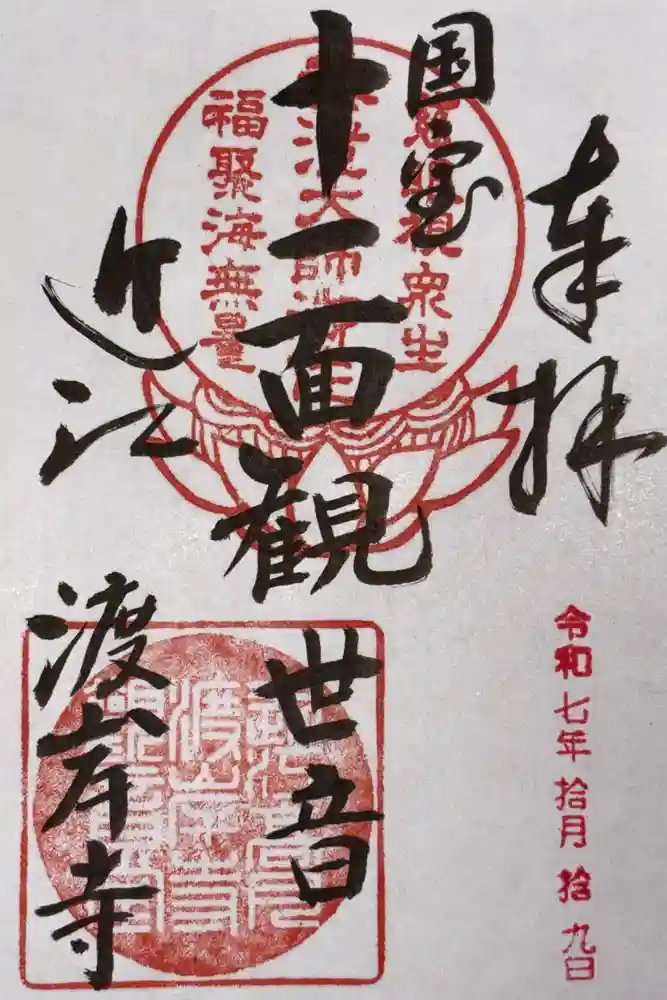 奉拝
国宝
十一面観世音
近江
渡岸寺
慈眼視衆生
福聚海無量
渡岸寺
令和七年拾月拾九日